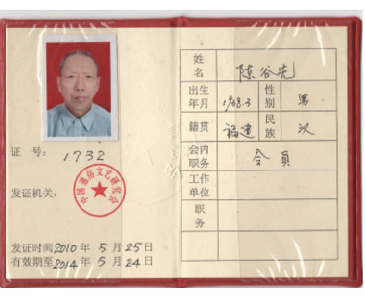 证 号: 1732
发证机关:
中国通俗文艺研究会
发证时间 2010 年 5 月 25 日
有效期至 2014 年 5 月 24 日
姓名 陈谷先
出生年月 1938.3 性别 男
籍贯 福建 民族 汉
会内职务 会员
工作单位
职务